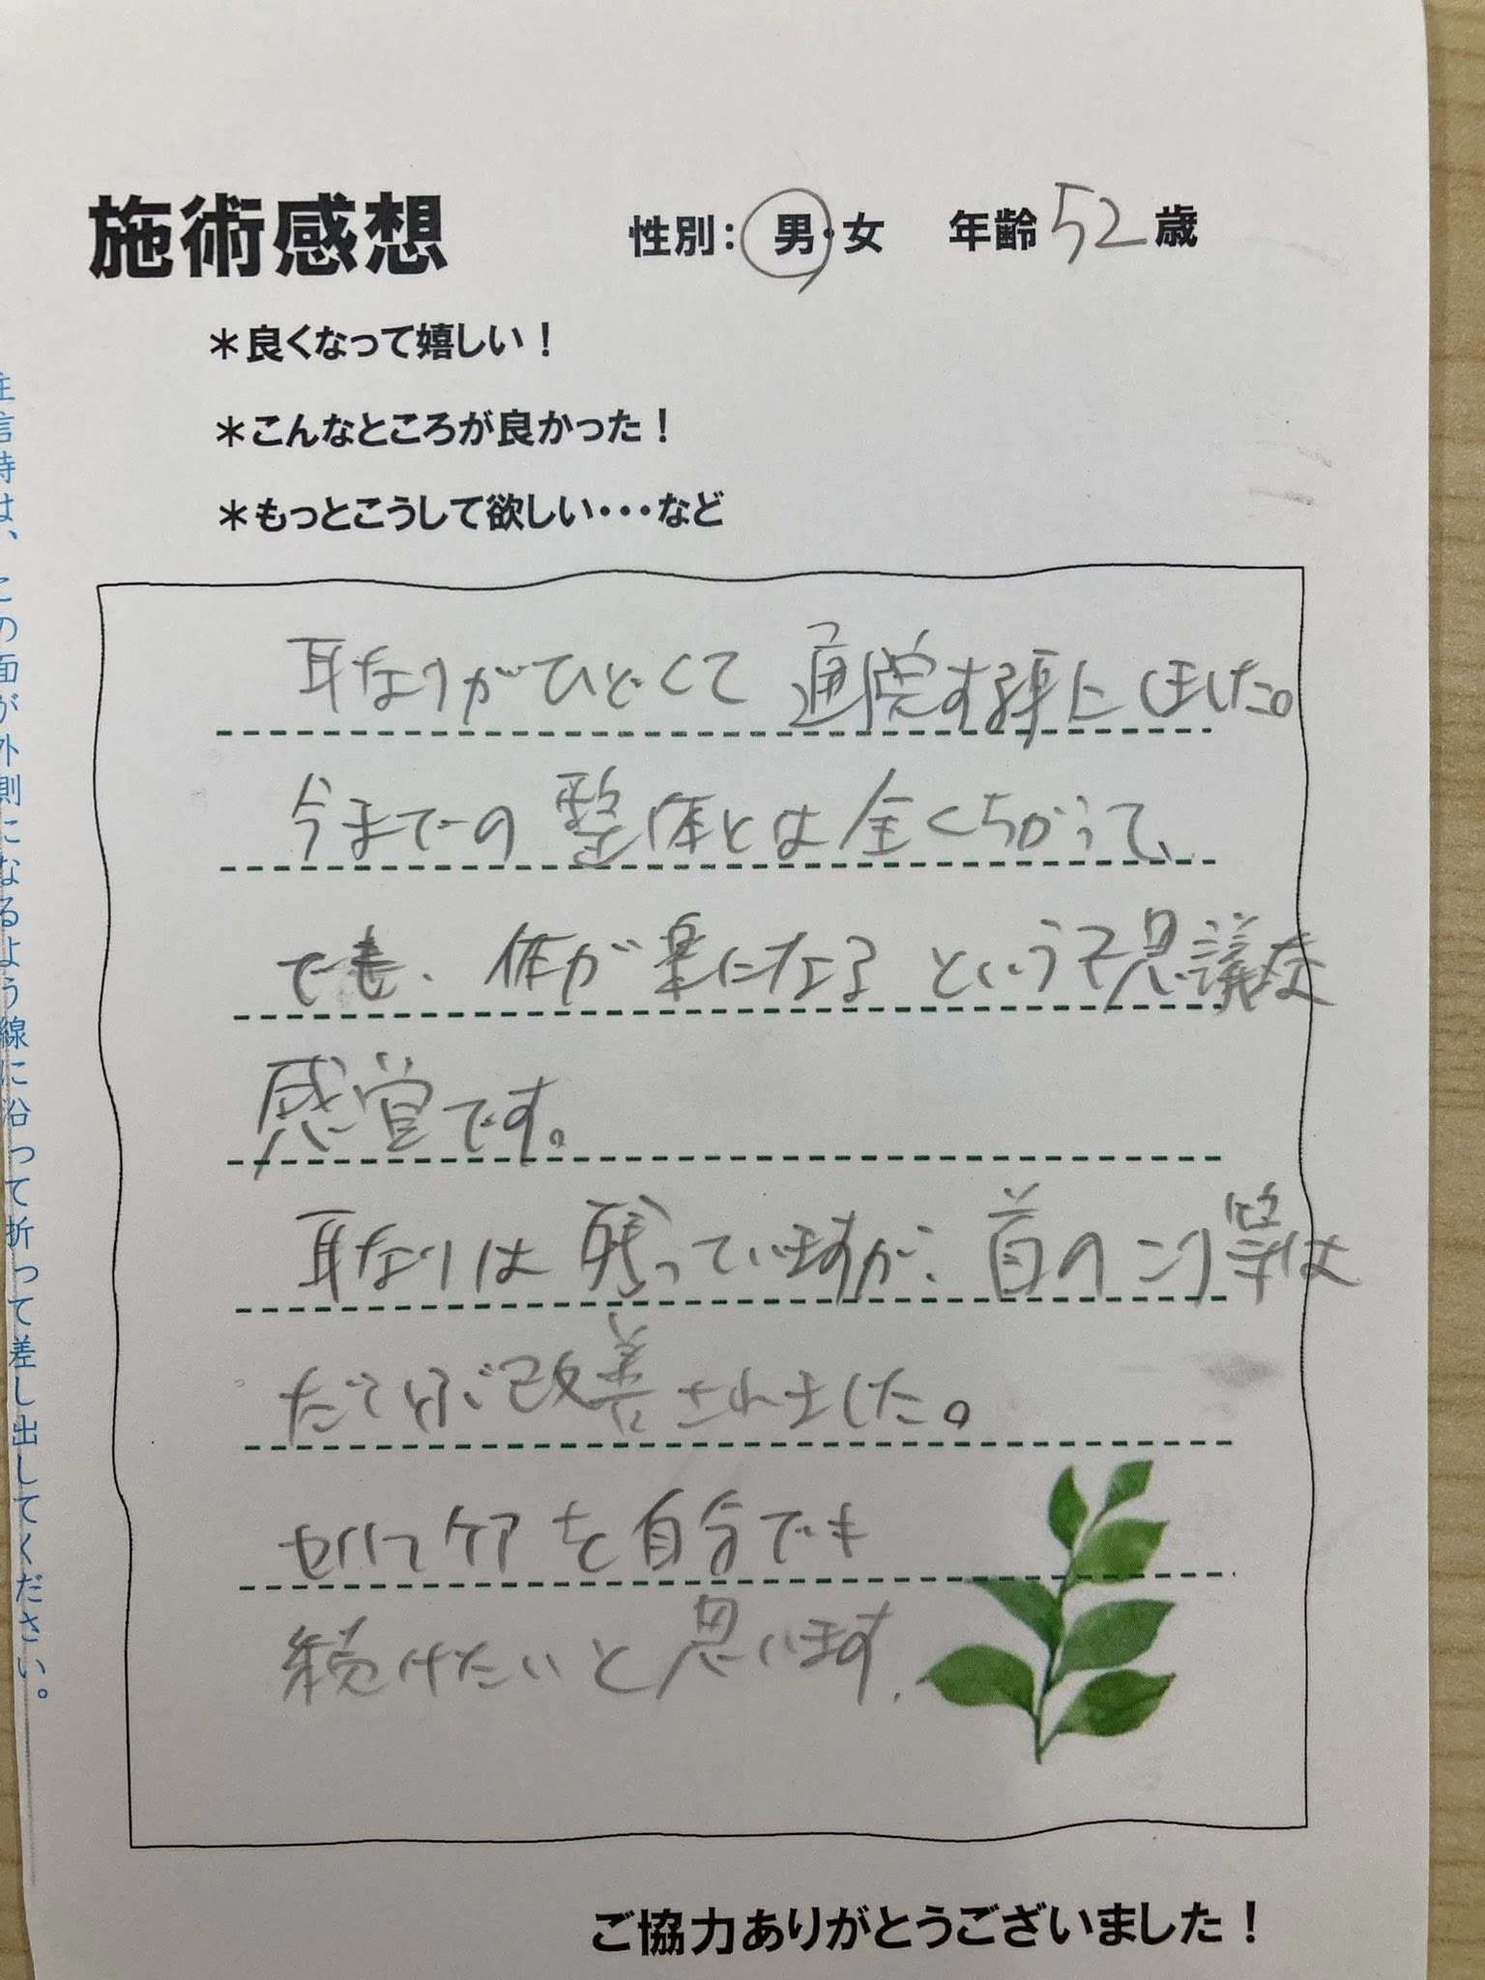 施術感想 性別： 男・女 年齢 52 歳
＊良くなって嬉しい！
＊こんなところが良かった！
＊もっとこうして欲しい・・・など
耳なりがひどくて 通院する事にしました。
今までの 整体とは全くちがって、
でも、体が楽になる という不思議な
感覚です。
耳なりは 残っていますが、首のこり等は
だいぶ改善されました。
セルフケアを自分でも
続けたいと思います.
ご協力ありがとうございました！
は、この面が外側になるよう線に沿って折って差し出してください。